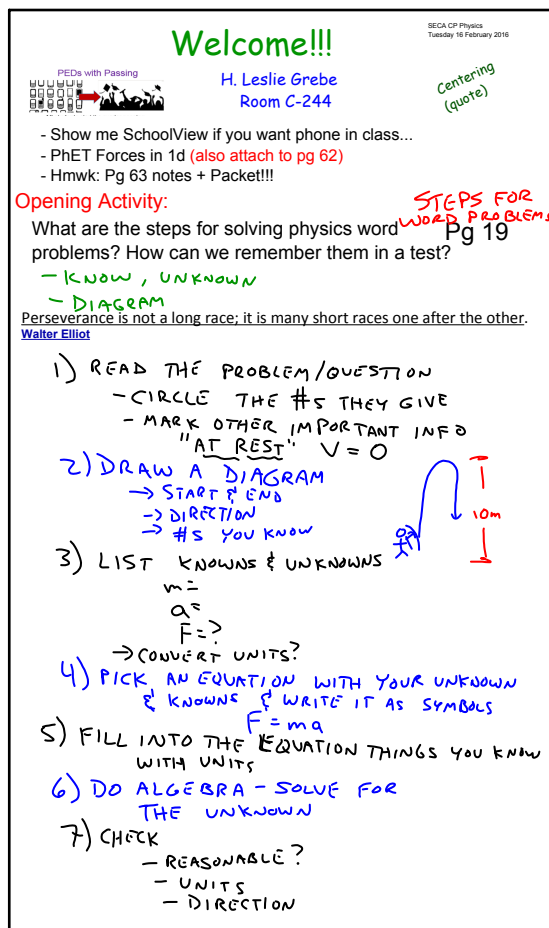 SECA CP Physics
Tuesday 16 February 2016
Welcome!!!
PEDs with Passing
H. Leslie Grebe
Room C-244
Centering
(quote)
- Show me SchoolView if you want phone in class...
- PhET Forces in 1d (also attach to pg 62)
- Hmwk: Pg 63 notes + Packet!!!
Opening Activity:
STEPS FOR
WORD PROBLEMS
Pg 19
What are the steps for solving physics word
problems? How can we remember them in a test?
- KNOW, UNKNOWN
- DIAGRAM
Perseverance is not a long race; it is many short races one after the other.
Walter Elliot
1) READ THE PROBLEM/QUESTION
- CIRCLE THE #s THEY GIVE
- MARK OTHER IMPORTANT INFO
"AT REST" V = 0
2) DRAW A DIAGRAM
→ START & END
→ DIRECTION
→ #s YOU KNOW
10m
3) LIST KNOWNS & UNKNOWNS
m=
a=
F=?
→ CONVERT UNITS?
4) PICK AN EQUATION WITH YOUR UNKNOWN
& KNOWNS & WRITE IT AS SYMBOLS
F=ma
5) FILL INTO THE EQUATION THINGS YOU KNOW
WITH UNITS
6) DO ALGEBRA - SOLVE FOR
THE UNKNOWN
7) CHECK
- REASONABLE?
- UNITS
- DIRECTION